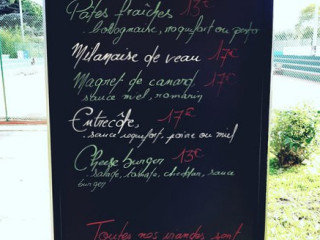 Pâtes fraîches 13€
bolognaise, roquefort ou pesto
Milanaise de veau 17€
Magret de canard 17€
sauce miel, romarin
Entrecôte, 17€
. sauce roquefort, poivre ou miel
Cheese burger 13€
. salade, tomate, cheddar, sauce
burger
Toutes nos viandes sont